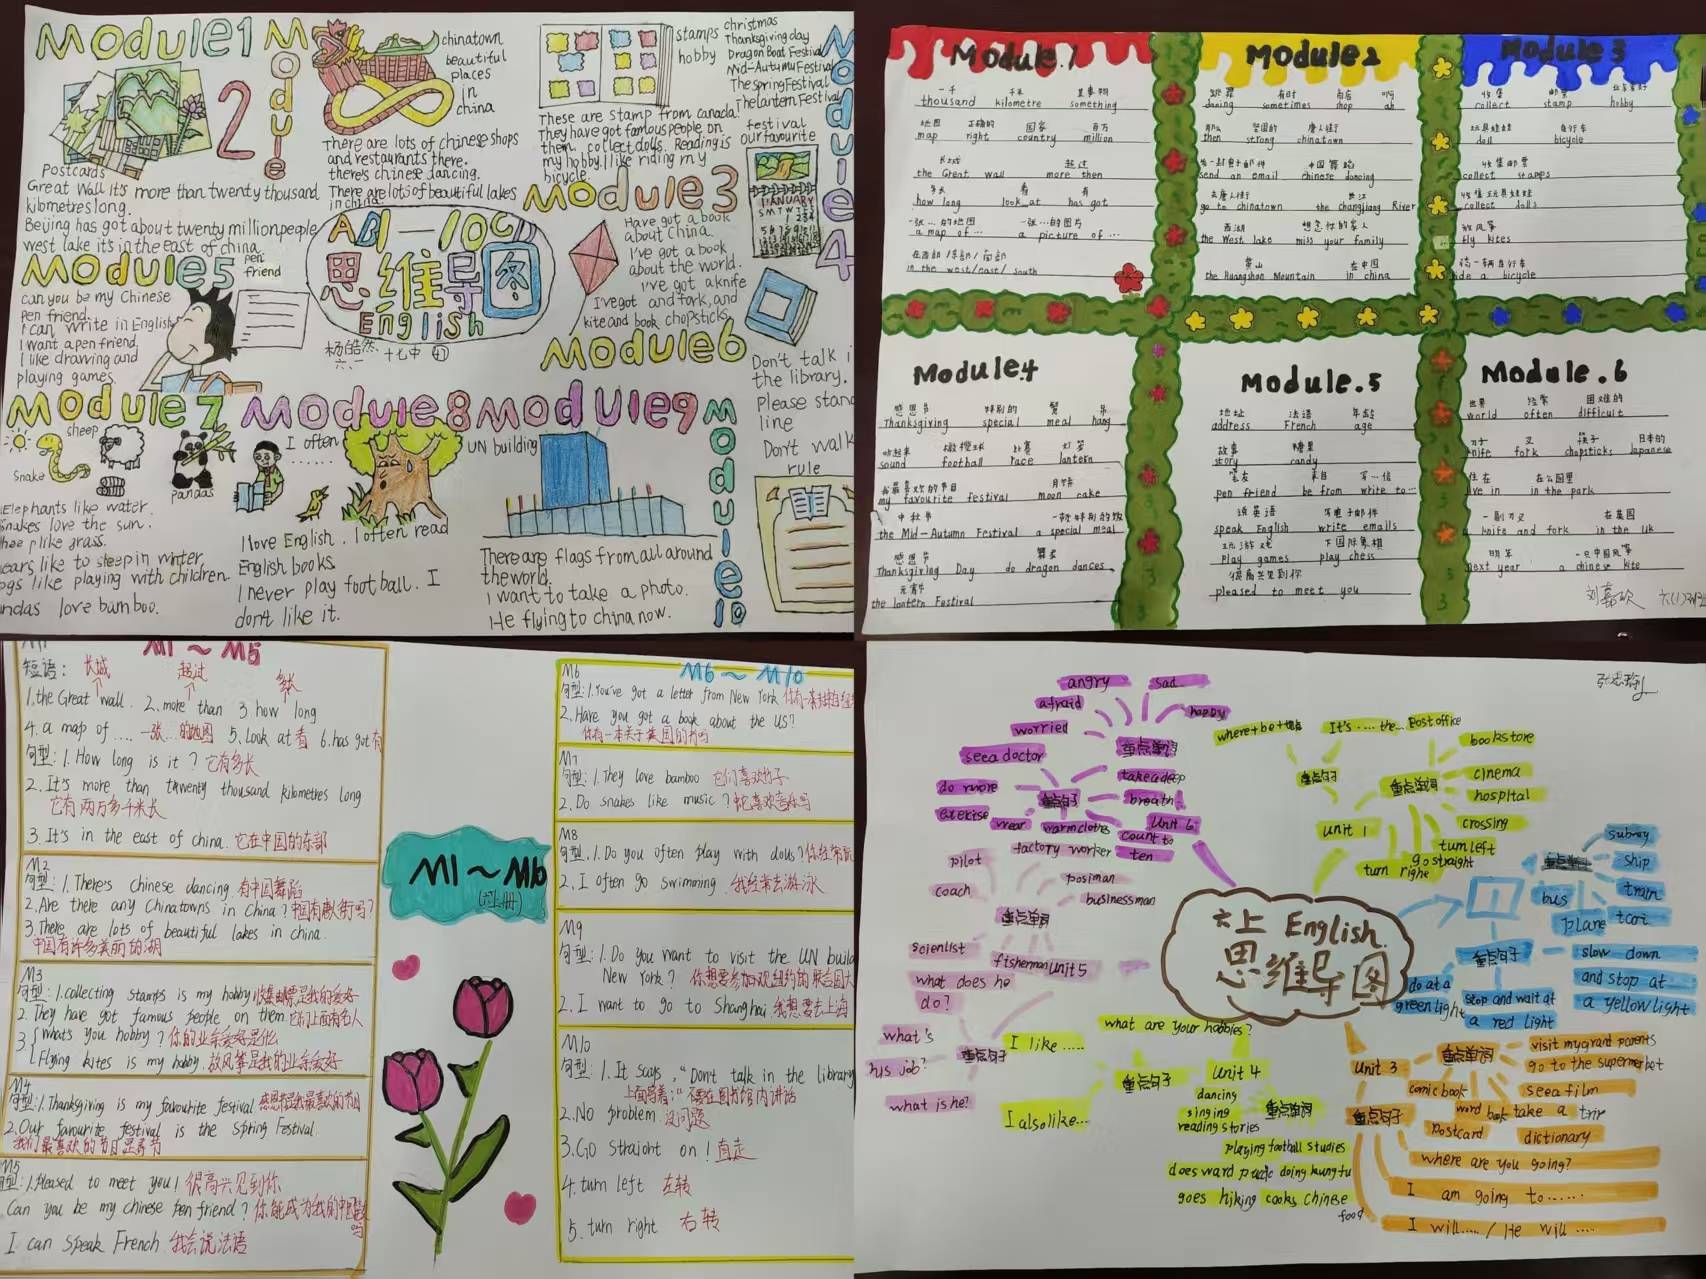 Module1
2
Module
Postcards
Great Wall It's more than twenty thousand
kilometres long.
Beijing has got about twenty million people
west lake it's in the east of china
chinatown
beautiful
places
in
china
There are lots of chinese shops
and restaurants there.
there's chinese dancing.
There are lots of beautiful lakes
in china
stamps
hobby
These are stamp from canada!
They have got famous people on
them, collect dolls. Reading is
my hobby. I like riding my
bicycle.
Module3
christmas
Thanksgiving day
Dragon Boat Festival
Mid-Autumu Festival
The spring Festival
The lantern Festival
festival
our favourite
JANUARY
Module4
思维导图
English
十七中
Module5
pen
friend
can you be my Chinese
pen friend.
I can write in English
I want a pen friend.
I like drawing and
playing games.
Have got a book
about China.
I've got a book
about the world.
I've got a knife
I've got and fork, and
kite and book chopsticks.
Module6
Module7
sheep
Snake
pandas
Elephants like water.
Snakes love the sun.
like grass.
like to sleep in winter
like playing with children.
love bamboo.
Module8
I often
......
I love English. I often read
English books.
I never play football. I
don't like it.
Module9
UN building
There are flags from all around
the world.
I want to take a photo.
He flying to china now.
Module10
Don't talk i
the library.
Please stand
line
Don't walk
rule
Module.1
一千 千米 某事物
thousand kilometre something
地图 正确的 国家 百万
map right country million
长城 超过
the Great wall more then
多长 看 有
how long look at has got
一张…的地图 一张…的图片
a map of … a picture of …
在西部/东部/南部
in the west/east/south
Module2
跳舞 有时 商店 啊
dancing sometimes shop ah
那么 坚固的 唐人街
then strong chinatown
发一封电子邮件 中国舞蹈
send an email chinese dancing
去唐人街 长江
go to chinatown the changjiang River
西湖 想念你的家人
the West lake miss your family
黄山 在中国
the Huangshan Mountain in china
Module3
收集 邮票 业余爱好
collect stamp hobby
玩具娃娃 自行车
doll bicycle
收集邮票
collect stapps
收集玩具娃娃
collect dolls
放风筝
fly kites
骑一辆自行车
ride a bicycle
Module.4
感恩节 特别的 餐 吊
Thanksgiving special meal hang
听起来 橄榄球 比赛 灯笼
sound football race lantern
我最喜欢的节日 月饼
my favourite festival moon cake
中秋节 一顿特别的饭
the Mid-Autumn Festival a special meal
感恩节 舞龙
Thanksgiving Day do dragon dances
元宵节
the lantern Festival
Module.5
地址 法语 年龄
address French age
故事 糖果
story candy
笔友 来自 写一信
pen friend be from write to…
说英语 写电子邮件
speak English write emails
玩游戏 下国际象棋
play games play chess
很高兴见到你
pleased to meet you
Module.6
世界 经常 困难的
world often difficult
刀子 叉 筷子 日本的
knife fork chopsticks Japanese
住在 在公园里
live in in the park
一副刀叉 在英国
a knife and fork in the UK
明年 一只中国风筝
next year a chinese kite
刘嘉欣
M1~M5
短语: 长城 超过 多长
1.the Great wall. 2.more than 3.how long
4. a map of .... 一张…的地图 5.Look at 看 6.has got 有
句型: 1. How long is it? 它有多长
2. It's more than twenty thousand kilometres long
它有两万多千米长
3. It's in the east of china. 它在中国的东部
M2
句型: 1. There's chinese dancing. 有中国舞蹈
2.Are there any Chinatowns in China? 中国有唐人街吗?
3.There are lots of beautiful lakes in china.
中国有许多美丽的湖
M3
句型: 1.collecting stamps is my hobby 收集邮票是我的爱好
2. They have got famous people on them. 它们上面有名人
3 What's you hobby? 你的业余爱好是什么
Flying kites is my hobby. 放风筝是我的业余爱好
M4
句型:1.Thanksgiving is my favourite festival. 感恩节是我最喜欢的节日
2.Our favourite festival is the Spring Festival.
我们最喜欢的节日是春节
M5
句型:1.Pleased to meet you! 很高兴见到你
Can you be my chinese pen friend? 你能成为我的中国笔友吗
I can speak French. 我会说法语
M1~M10
(六上册)
M6~M10
M6
句型:1.You've got a letter from New York
2.Have you got a book about the US?
你有一本关于美国的书吗
M7
句型: 1.They love bamboo 它们喜欢竹子
2.Do snakes like music? 蛇喜欢音乐吗
M8
句型. 1.Do you often play with dolls?
2. I often go swimming. 我经常去游泳
M9
句型: 1.Do you want to visit the UN build
New York?
2. I want to go to Shanghai 我想要去上海
M10
句型: 1. It says, "Don't talk in the library
上面写着:"不要在图书馆内讲话
2.No problem. 没问题
3.Go straight on! 直走
4. turn left 左转
5. turn right 右转
六上 English
思维导图
angry
sad
happy
afraid
worried
see a doctor
do more
exercise
wear
warm clothes
重点单词
重点句子
take a deep
breath
count to
ten
Unit 6
factory worker
pilot
coach
posiman
businessman
重点单词
scienlist
fisherman
unit5
what does he
do?
what's
his job?
what is he?
重点句子
where+be+地点
It's ..... the... post office
bookstore
cinema
hospltal
crossing
turn left
go straight
turn righe
重点句子
重点单词
unit 1
subway
ship
train
taxi
bus
plane
重点句子
slow down
and stop at
a yellow light
stop and wait at
a red light
go at a
green light
unit 3
重点单词
visit my grant parents
go to the supermarket
see a film
take a trip
comic book
word book
postcard
dictionary
重点句子
where are you going?
I am going to ......
I will...../ He will .....
what are your hobbies?
I like .....
I also like...
重点句子
unit 4
重点单词
dancing
singing
reading stories
playing football studies
does word puzzle doing kungfu
goes hiking cooks chinese
food